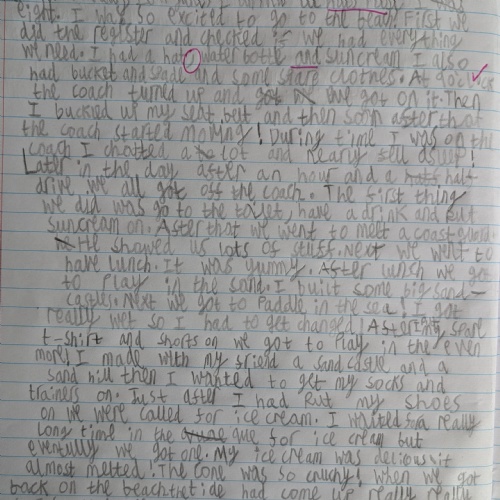 eight. I was so excited to go to the beach. First we
did the register and checked if we had everything
we need. I had a hat, water bottle and suncream. I also
had bucket and spade and some spare clothes. At 9 o'clock
the coach turned up and we got on it. Then
I buckled up my seat belt and then soon after that
the coach started moving! During time I was on the
coach I chatted a lot and nearly fell asleep!
Later in the day after an hour and a half
drive we all got off the coach. The first thing
we did was go to the toilet, have a drink and put
suncream on. After that we went to meet a coastguard.
He showed us lots of stuff. Next we went to
have lunch. It was yummy. After lunsh we got
to play in the sand. I built some big sand
castles. Next we got to paddle in the sea! I got
really wet so I had to get changed! After my spare
t-shirt and shorts on we got to play in the even
more! I made with my friend a sand castle and a
sand hill then I wanted to get my socks and
trainers on. Just after I had put my shoes
on we were called for ice cream. I waited for a really
long time in the que for ice cream but
eventully we got one. My ice cream was delicous it
almost melted! The cone was so cruchy! when we got
back on the beach the tide had come up really really